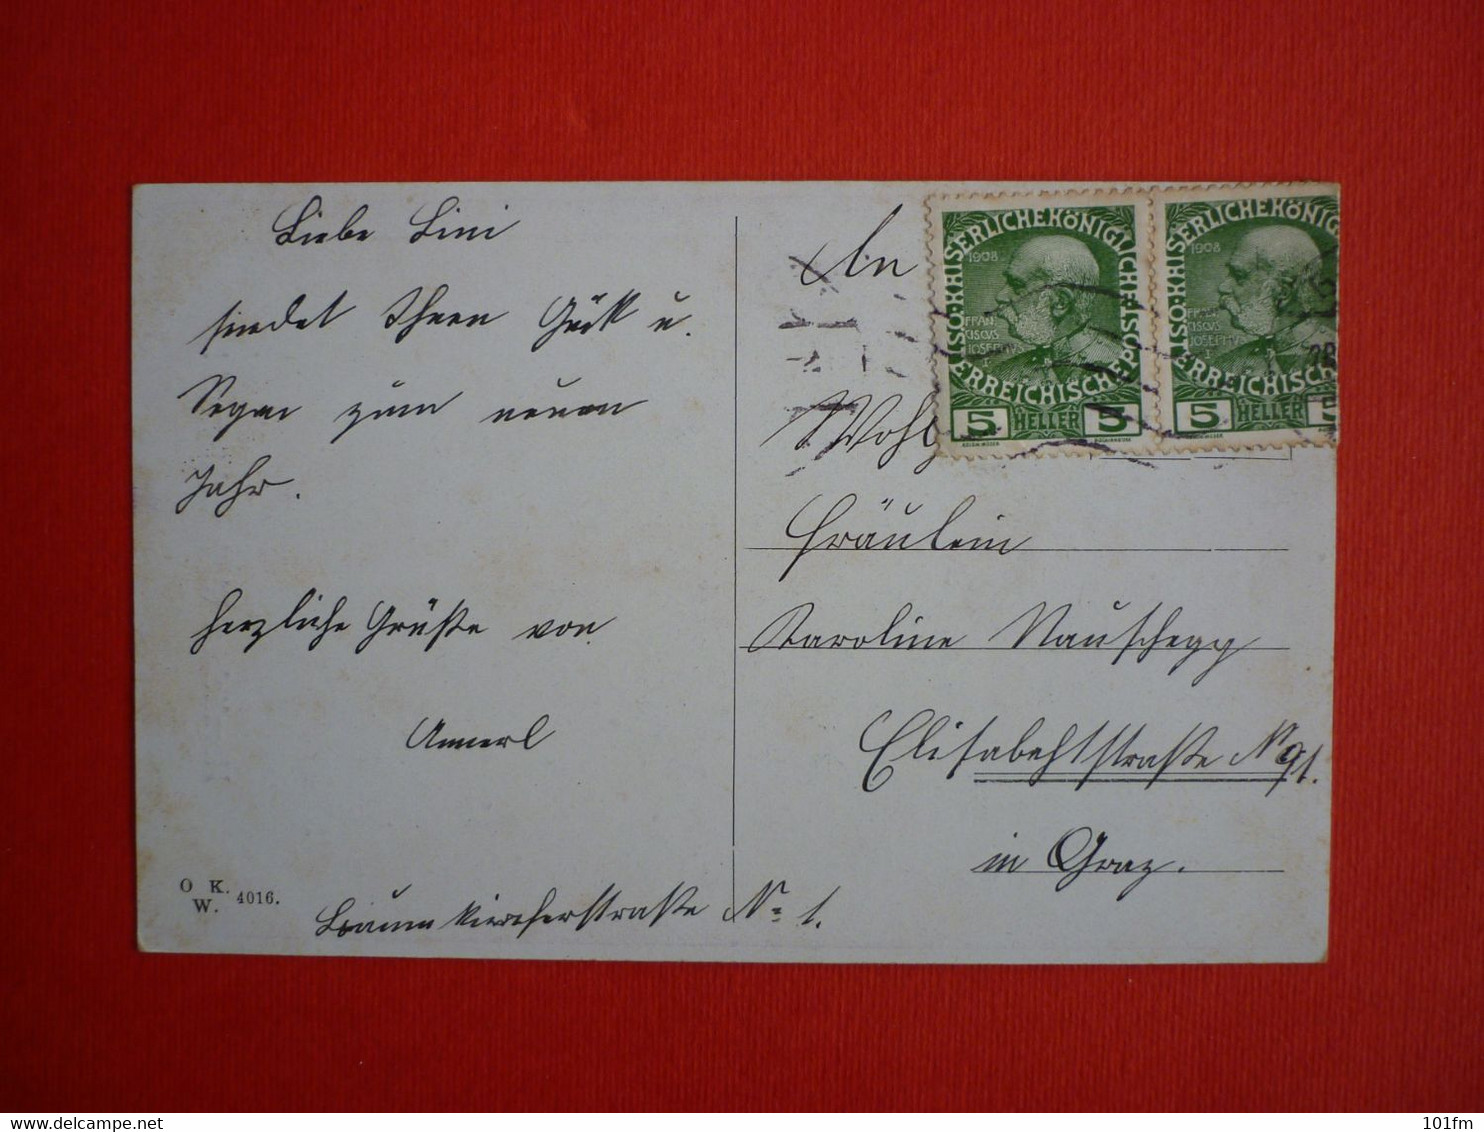 Liebe Lini
sendet Ihnen Glück u.
Segen zum neuen
Jahr.
herzliche Grüße von
Annerl
O K. W. 4016.
Baumkircherstraße No 1.
An
Wohlg
Fräulein
Karoline Nauschegg
Elisabethstraße No 91.
in Graz.
KAISERLICHE KÖNIGLICHE ÖSTERREICHISCHE POST
1908
FRAN
CISCVS
IOSEPHVS
I
5 HELLER 5
KAISERLICHE KÖNIGL
1908
FRAN
CISCVS
IOSEPHV
I
5 HELLER 5
delcampe.net
101fm